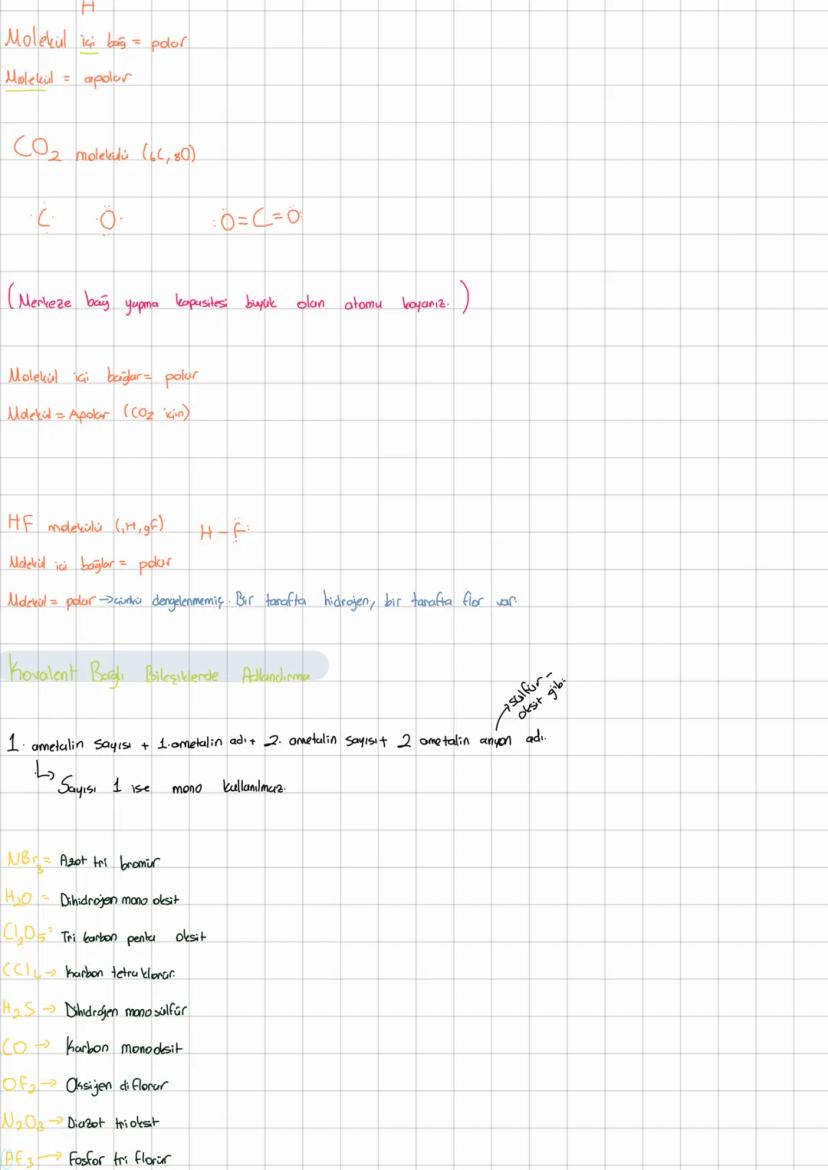 H
Molekül içi bağ = polar
Molekül = apolar
CO₂ molekülü (₆C, ₈O)
C O :O=C=O:
(Merkeze bağ yapma kapasitesi büyük olan atomu koyarız.)
Molekül içi bağlar = polar
Molekül = Apolar (CO₂ için)
HF molekülü (₁H, ₉F) H-F:
Molekül içi bağlar = polar
Molekül = polar → çünkü dengelenmemiş. Bir tarafta hidrojen, bir tarafta flor var.
Kovalent Bağlı Bileşiklerde Adlandırma
→ sülfür-
oksit gibi
1. ametalin sayısı + 1. ametalin adı + 2. ametalin sayısı + 2 ametalin anyon adı.
↳ Sayısı 1 ise mono kullanılmaz.
NBr₃ = Azot tri bromür
H₂O = Dihidrojen mono oksit
Cl₂O₅ = Tri karbon penta oksit
CCl₄ → karbon tetra klorür.
H₂S → Dihidrojen mono sülfür
CO → Karbon monoksit
OF₂ → Oksijen di florür
N₂O₃ → Diazot trioksit
PF₃ → Fosfor tri florür